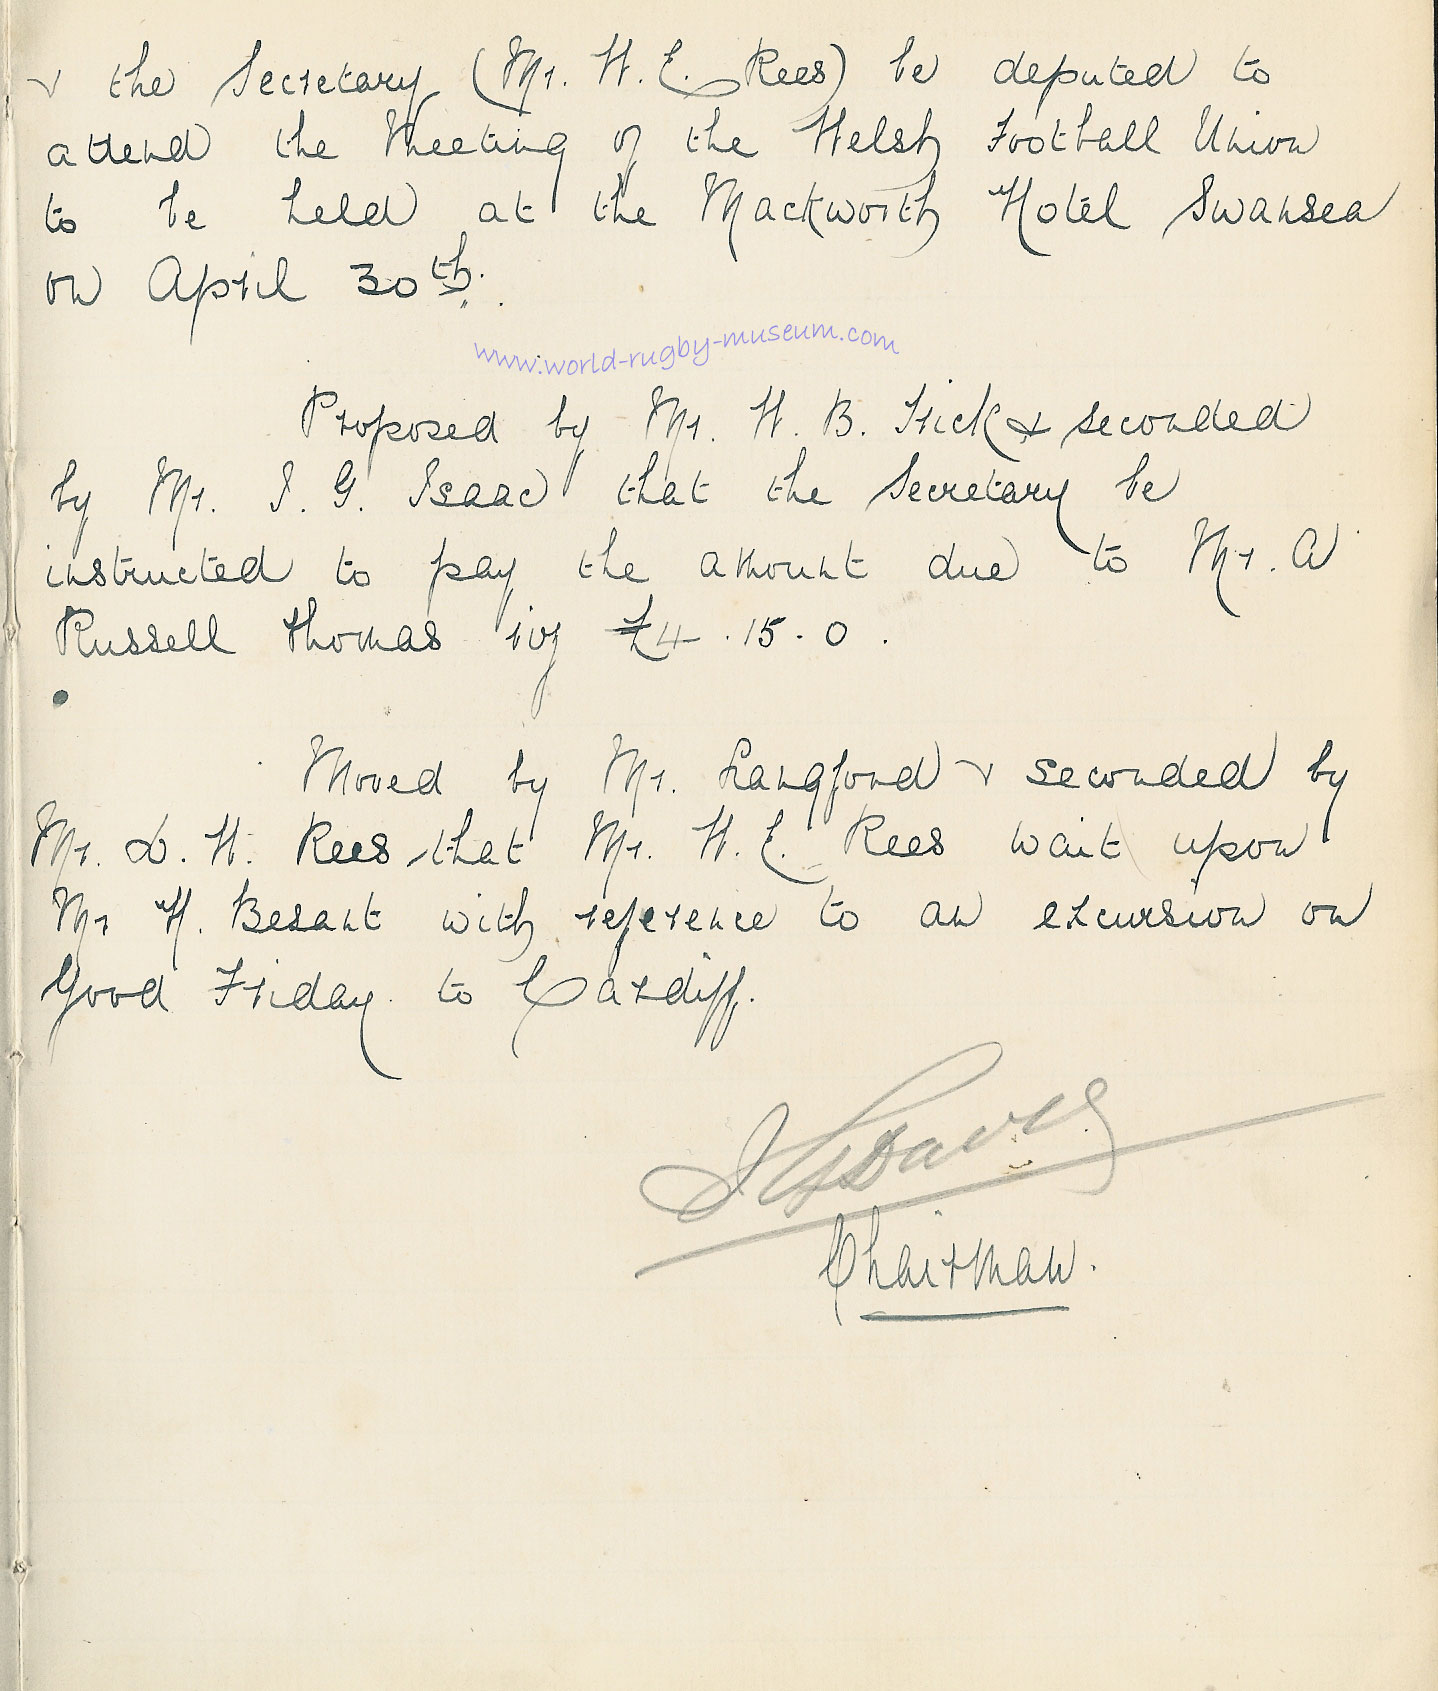 & the Secretary (Mr. W. E. Rees) be deputed to
attend the Meeting of the Welsh Football Union
to be held at the Mackworth Hotel Swansea
on April 30th.
www.world-rugby-museum.com
Proposed by Mr. W. B. Trick & seconded
by Mr. J. G. Isaac that the Secretary be
instructed to pay the amount due to Mr. A
Russell Thomas viz £4.15.0.
Moved by Mr. Langford & seconded by
Mr. D. H. Rees that Mr. W. E. Rees wait upon
Mr H. Besant with reference to an excursion on
Good Friday to Cardiff.
Davies
Chairman.